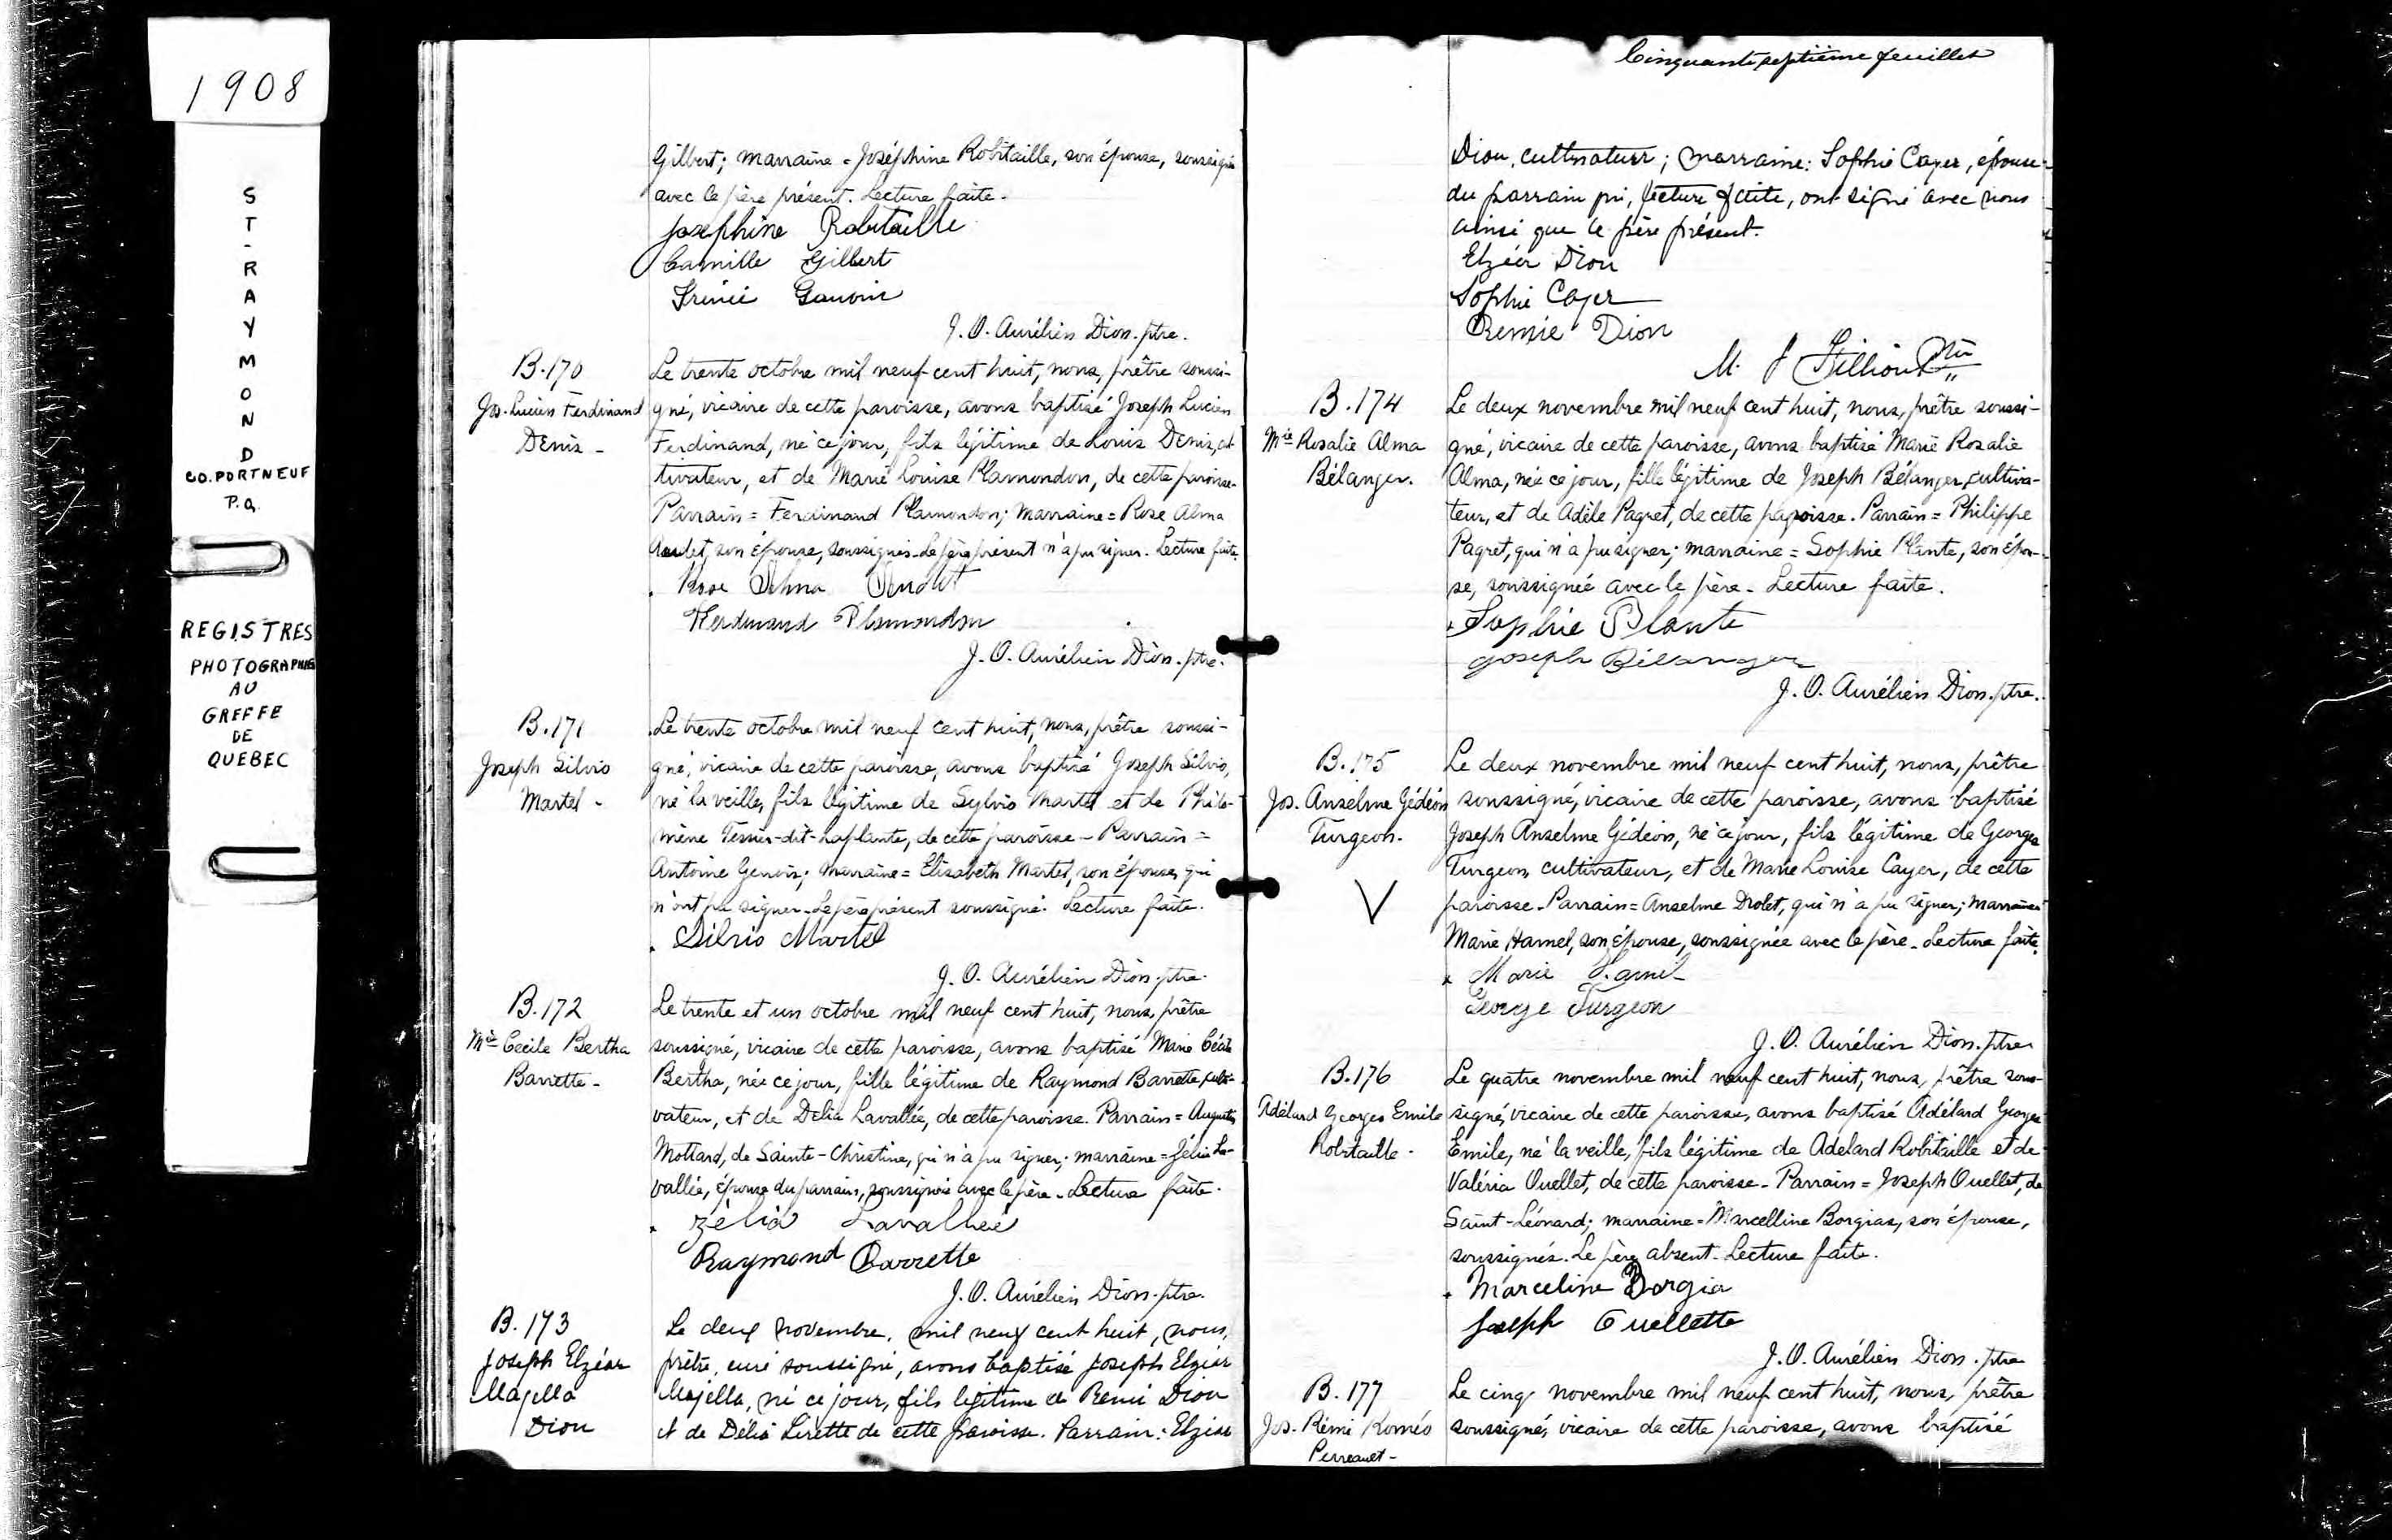 1908
S
T
-
R
A
Y
M
O
N
D
CO. PORTNEUF
P.Q.
REGISTRES
PHOTOGRAPHIÉS
AU
GREFFE
DE
QUEBEC
Gilbert; marraine = Joséphine Robitaille, son épouse, soussignés
avec le père présent. Lecture faite.
Josephine Robitaille
Camille Gilbert
Irénée Gauvin
J. O. Aurélien Dion. ptre.
B.170
Jos. Lucien Ferdinand
Denis -
Le trente octobre mil neuf cent huit, nous, prêtre soussi-
gné, vicaire de cette paroisse, avons baptisé Joseph Lucien
Ferdinand, né ce jour, fils légitime de Louis Denis, cul-
tivateur, et de Marie Louise Plamondon, de cette paroisse.
Parrain = Ferdinand Plamondon; marraine = Rose Alma
Audet, son épouse, soussignés. Le père présent n'a pu signer. Lecture faite.
Rose Alma
Ferdinand Plamondon
J. O. Aurélien Dion. ptre.
B.171
Joseph Silvio
Martel -
Le trente octobre mil neuf cent huit, nous, prêtre soussi-
gné, vicaire de cette paroisse, avons baptisé Joseph Silvio,
né la veille, fils légitime de Sylvio Martel et de Philo-
mène Tessier-dit-Laplante, de cette paroisse - Parrain =
Antoine Genois; marraine = Elisabeth Martel, son épouse, qui
n'ont pu signer. Le père présent soussigné. Lecture faite.
Silvio Martel
J. O. Aurélien Dion. ptre.
B.172
Mie Cécile Bertha
Barrette -
Le trente et un octobre mil neuf cent huit, nous, prêtre
soussigné, vicaire de cette paroisse, avons baptisé Marie Cécile
Bertha, née ce jour, fille légitime de Raymond Barrette, culti-
vateur, et de Delia Lavallée, de cette paroisse. Parrain = Augustin
Mottard, de Sainte-Christine, qui n'a pu signer; marraine = Zélia La-
vallée, épouse du parrain, soussignée avec le père. Lecture faite.
Zélia Lavallheé
Raymond Barrette
J. O. Aurélien Dion. ptre.
B. 173
Joseph Elzéar
Magella
Dion
Le deux novembre, mil neuf cent huit, nous,
prêtre, curé soussigné, avons baptisé Joseph Elzéar
Majella, né ce jour, fils légitime de Remi Dion
et de Délia Lirette de cette paroisse. Parrain: Elzéar
Cinquante septième feuillet
Dion, cultivateur; marraine: Sophie Cayer, épouse
du parrain qui, lecture faite, ont signé avec nous
ainsi que le père présent.
Elzéar Dion
Sophie Cayer
Remie Dion
M. J
B.174
Mie Rosalie Alma
Bélanger.
Le deux novembre mil neuf cent huit, nous, prêtre soussi-
gné, vicaire de cette paroisse, avons baptisé Marie Rosalie
Alma, née ce jour, fille légitime de Joseph Bélanger, cultiva-
teur, et de Adèle Paquet, de cette paroisse. Parrain = Philippe
Paquet, qui n'a pu signer; marraine = Sophie Plante, son épou-
se, soussignée avec le père. Lecture faite.
Sophie Plante
Joseph Bélanger
J. O. Aurélien Dion. ptre.
B.175
Jos. Anselme Gédéon
Turgeon.
V
Le deux novembre mil neuf cent huit, nous, prêtre
soussigné, vicaire de cette paroisse, avons baptisé
Joseph Anselme Gédéon, né ce jour, fils légitime de Georges
Turgeon, cultivateur, et de Marie Louise Cayer, de cette
paroisse. Parrain = Anselme Drolet, qui n'a pu signer; marraine =
Marie Hamel, son épouse, soussignée avec le père. Lecture faite.
Marie Hamel
George Turgeon
J. O. Aurélien Dion. ptre.
B.176
Adélard Georges Emile
Robitaille -
Le quatre novembre mil neuf cent huit, nous, prêtre sous-
signé, vicaire de cette paroisse, avons baptisé Adélard Georges
Emile, né la veille, fils légitime de Adelard Robitaille et de
Valéria Ouellet, de cette paroisse. Parrain = Joseph Ouellet, de
Saint-Léonard; marraine = Marcelline Borgias, son épouse,
soussignés. Le père absent. Lecture faite.
Marceline Borgia
Joseph Ouellette
J. O. Aurélien Dion. ptre
B. 177
Jos. Rémi Roméo
Perreault -
Le cinq novembre mil neuf cent huit, nous, prêtre
soussigné, vicaire de cette paroisse, avons baptisé